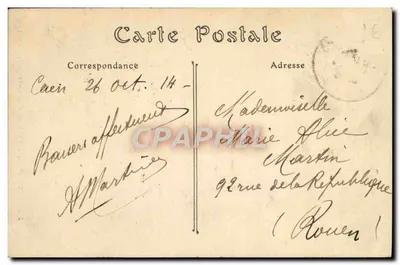 Carte Postale
Correspondance
Adresse
Caen 26 oct. 14-
affectueux
A Martin
Mademoiselle
Marie Alice
Martin
92 rue de la République
(Rouen)
CPAPHIL